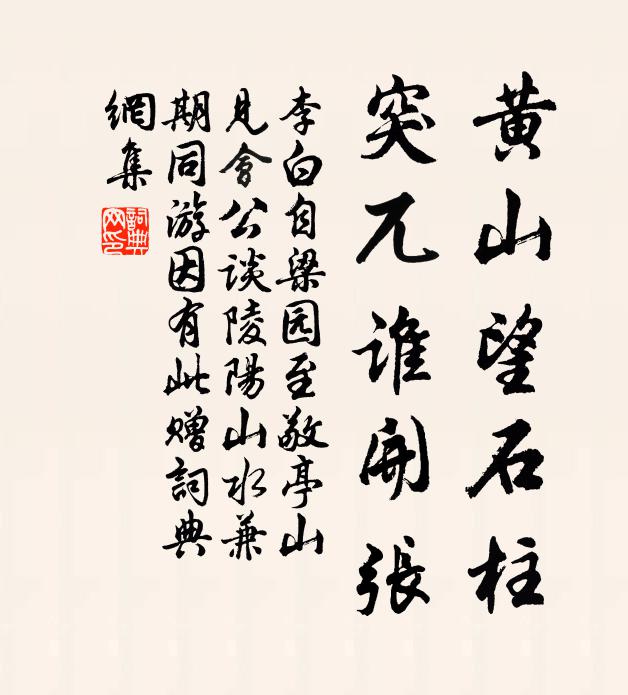 黄山望石柱
突兀谁開張
李白自梁园至敬亭山
見會公谈陵陽山水兼
期同游因有此赠詞典
網集
詞典網印